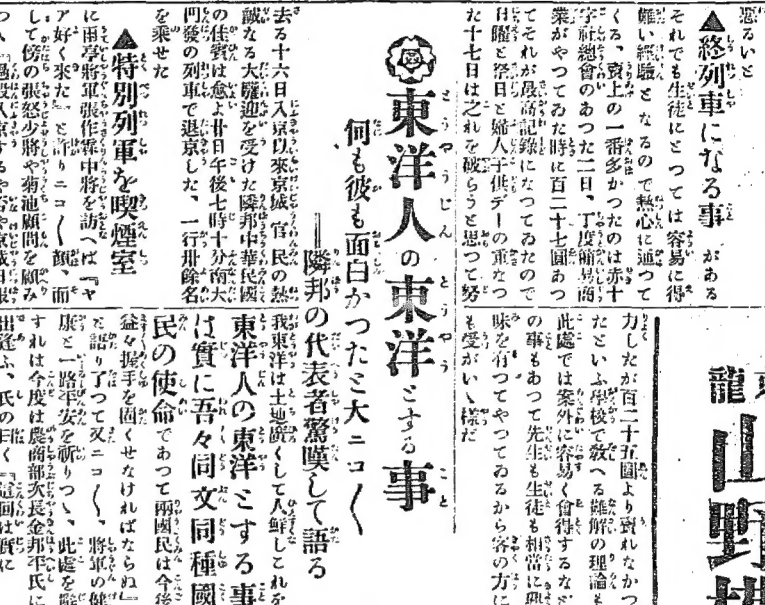 惡るいと
▲終列車になる事がある
それでも生徒にとつては容易に得
難い經驗となるので熱心に通つて
くる、賣上の一番多かつたのは赤十
字社總會のあつた二日、丁度簡易商
業がやつてゐた時に百二十七圓あつ
てそれが最高記錄になつてゐたので
日曜と祭日と婦人子供デーの重なつ
た十七日は之れを破らうと思つて努
力したが百二十五圓より賣れなかつ
たといふ學校で敎へる難解の理論も
此處では案外に容易く會得するなど
の事もあつて先生も生徒も相當に興
味を有つてやつてゐるから客の方に
も受がいゝ樣だ
東洋人の東洋とする事
何も彼も面白かつたと大ニコ〳〵
隣邦の代表者驚嘆して語る
去る十六日入京以來京城官民の熱
誠なる大歡迎を受けた隣邦中華民國
の佳賓は愈よ廿日午後七時十分南大
門發の列車で退京した、一行卅餘名
を乘せた
▲特別列車を喫煙室
に兩亭將軍張作霖中將を訪へば『ヤ
ア好く來た』と許りニコ〳〵顏、而
して傍の張恕少將や菊池顧問を顧み
我東洋は土地廣くして人鮮しこれを
東洋人の東洋とする事
は實に吾々同文同種國
民の使命であつて兩國民は今後
益々握手を固くせなければならぬ』
と語り了つて又ニコ〳〵、將軍の健
康と一路平安を祈りつゝ、此處を辭
すれば今度は農商部次長金邦平氏に
出逢ふ、氏の曰く『這回は實に
東
龍
山野